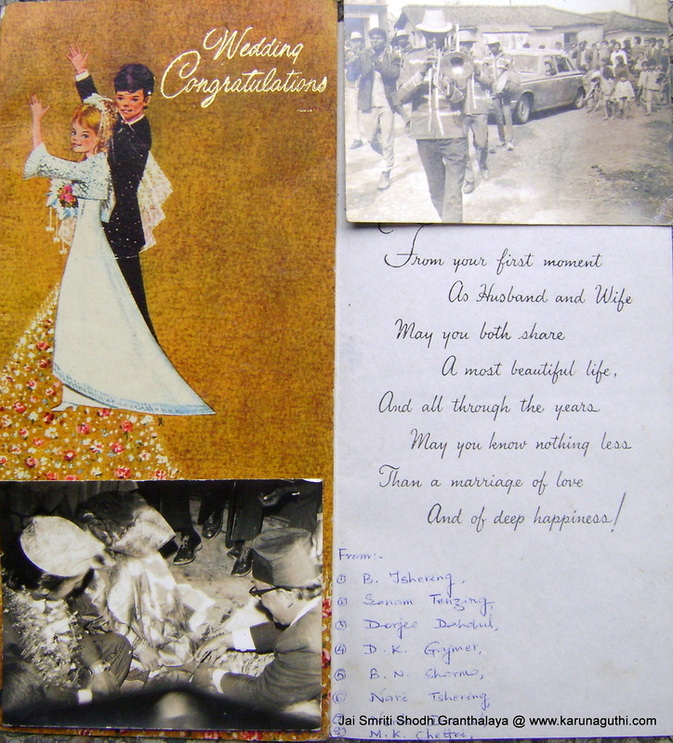 Wedding
Congratulations
From your first moment
As Husband and Wife
May you both share
A most beautiful life,
And all through the years
May you know nothing less
Than a marriage of love
And of deep happiness!
From:-
① B. Tshering,
② Sonam Tenzing,
③ Dorjee
④ D. K.
⑤ B. N. Sharma,
⑥ Nari Tshering,
⑧ M.K. Chettri,
Jai Smriti Shodh Granthalaya @ www.karunaguthi.com